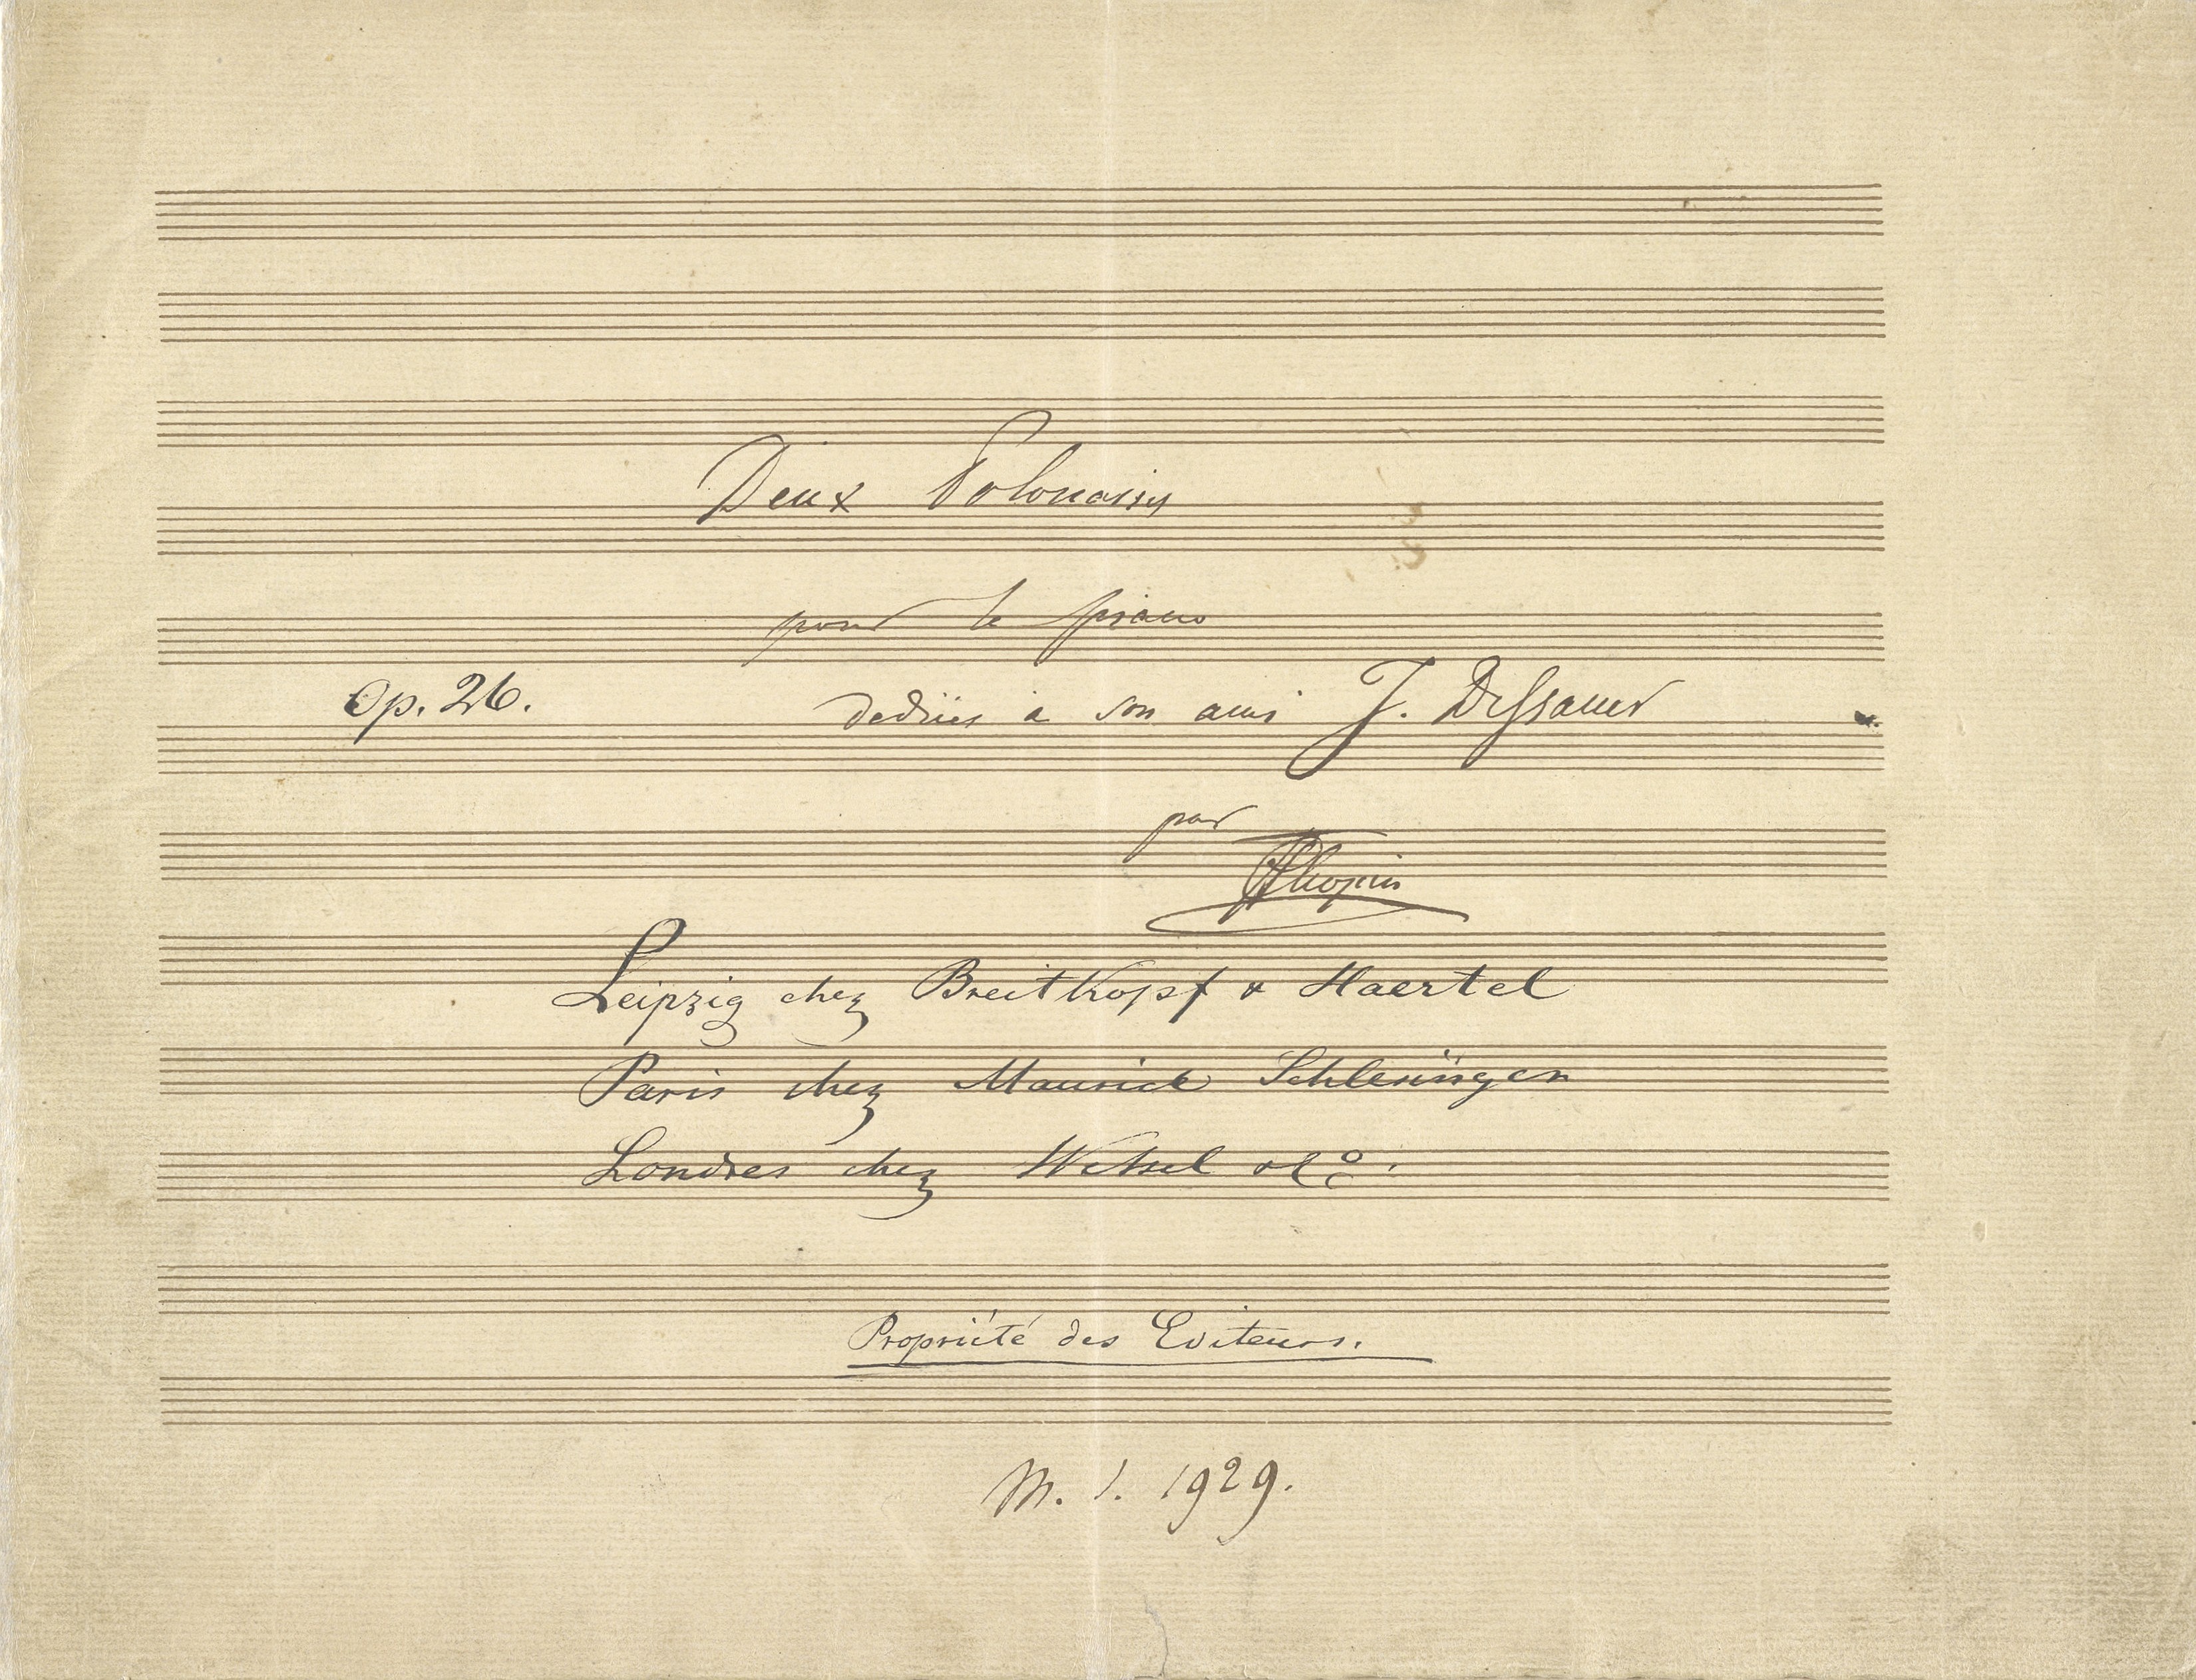 Deux Polonaises
pour le piano
Op. 26. dediées à son ami J. Dessauer
par
FChopin
Leipzig chez Breitkopf & Haertel
Paris chez Maurice Schlesinger
Londres chez Wessel & Co.
Propriété des Editeurs.
M. S. 1929.